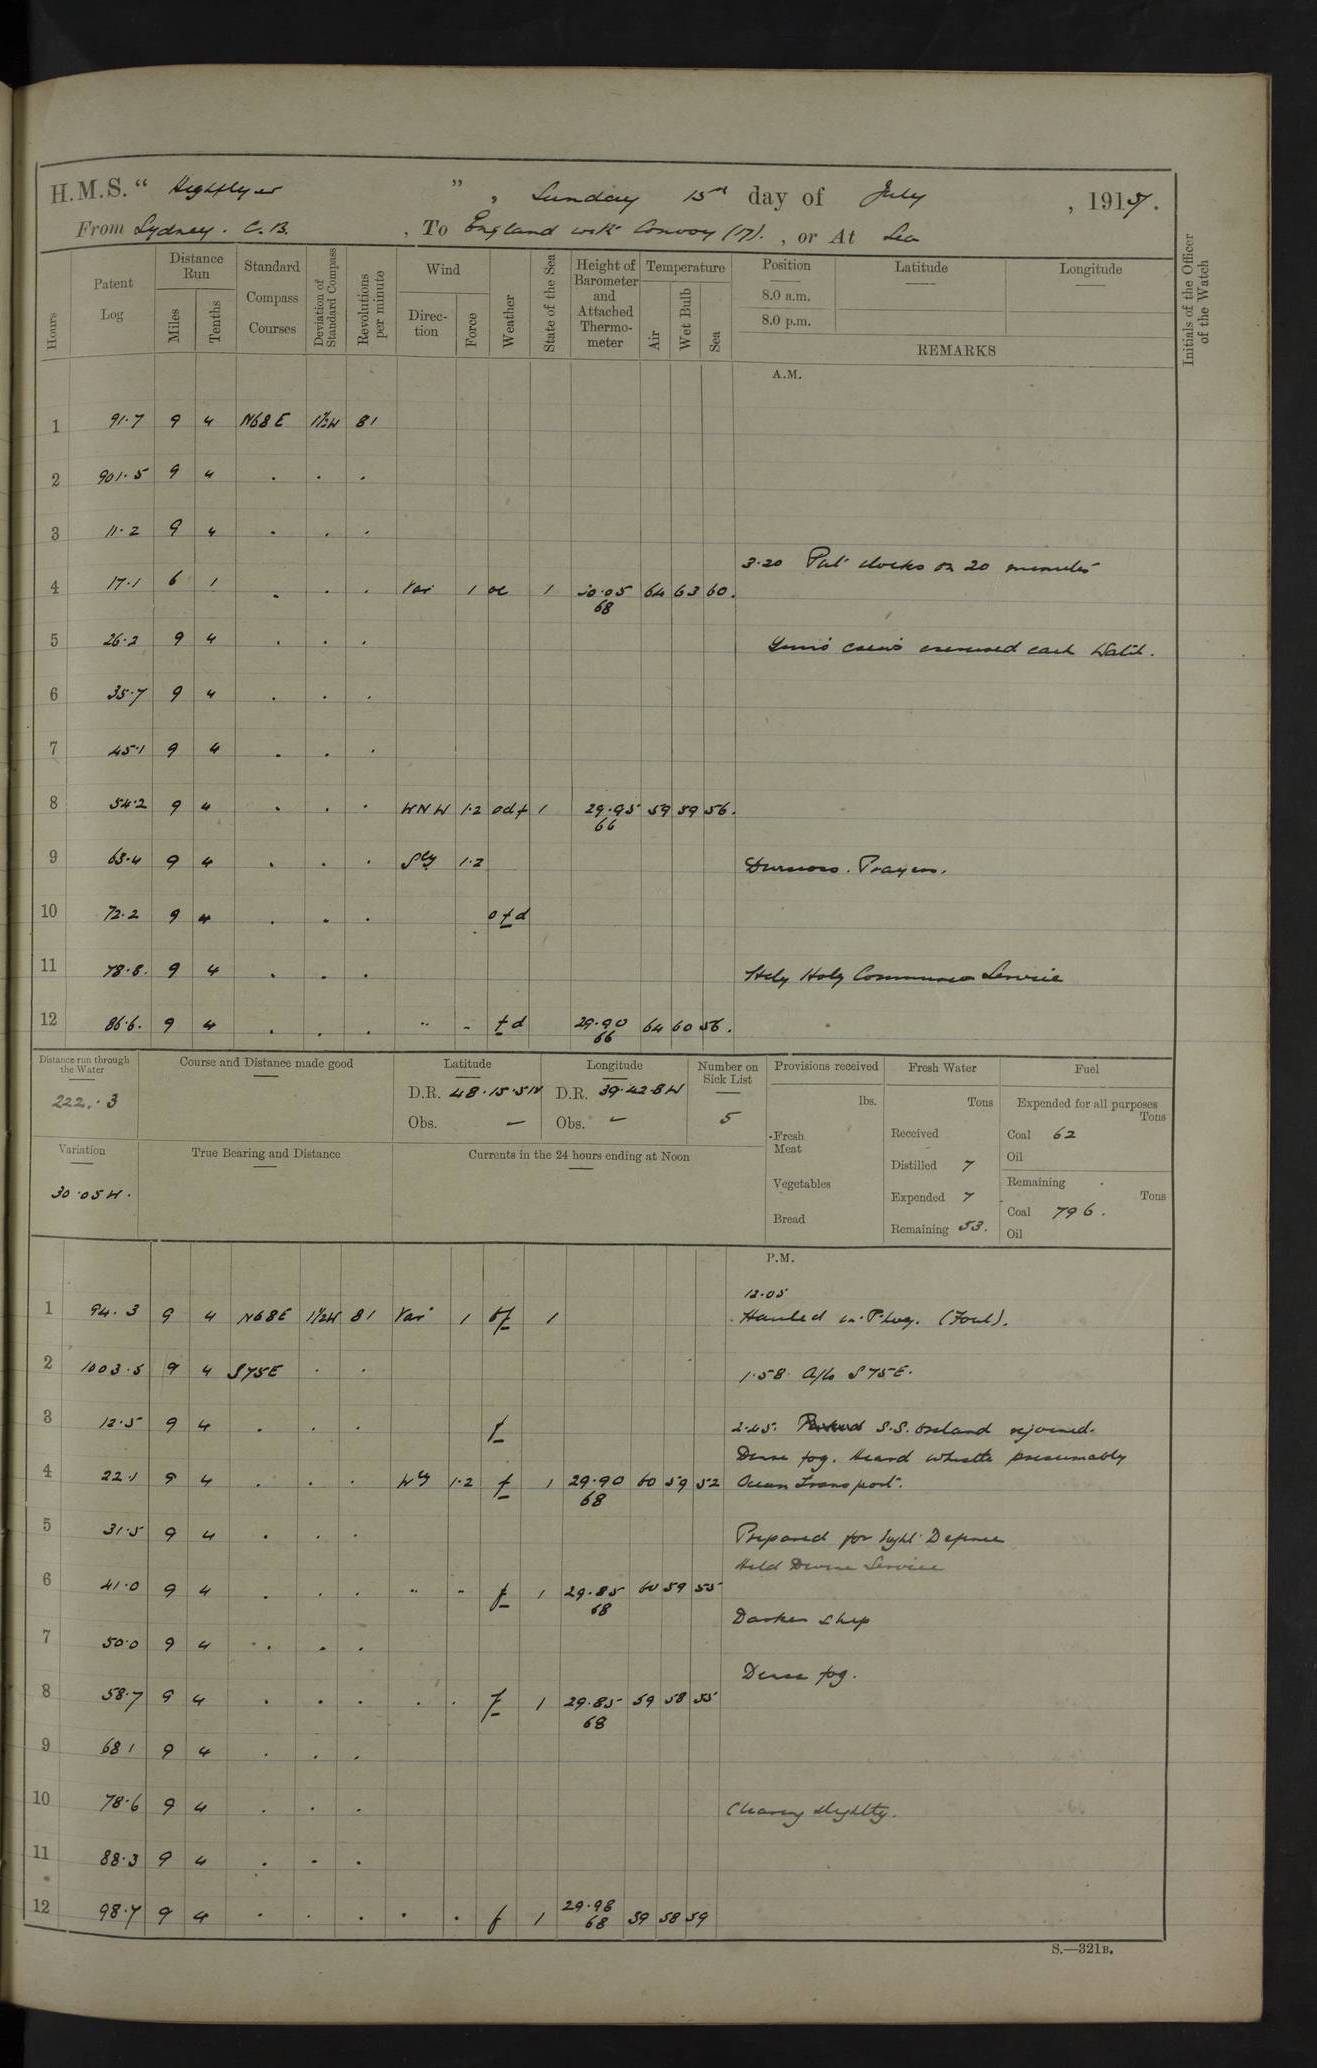 H.M.S. "Highflyer", Sunday 15th day of July, 1917.
From Sydney. C.B., To England with Convoy (17)., or At Sea
Hours
Patent Log
Distance Run
Miles
Tenths
Standard Compass Courses
Deviation of Standard Compass
Revolutions per minute
Wind
Direction
Force
Weather
State of the Sea
Height of Barometer and Attached Thermometer
Temperature
Air
Wet Bulb
Sea
Position
8.0 a.m.
8.0 p.m.
Latitude
Longitude
REMARKS
Initials of the Officer of the Watch
A.M.
1 91.7 9 4 N68E 1½W 81
2 901.5 9 4 . . .
3 11.2 9 4 . . .
3.20 Put clocks on 20 minutes
4 17.1 6 1 . . . Var 1 oc 1 30.05 64 63 60.
68
5 26.2 9 4 . . . Guns crews exercised each Watch.
6 35.7 9 4 . . .
7 45.1 9 4 . . .
8 54.2 9 4 . . . WNW 1.2 odf 1 29.95 59 59 56.
66
9 63.4 9 4 . . . Sly 1.2 Divisions. Prayers.
10 72.2 9 4 . . . o f d
11 78.8. 9 4 . . . Holy Communion Service
12 86.6. 9 4 . . . " - f d 29.90 64 60 56.
66
Distance run through the Water
222.3
Course and Distance made good
Latitude
D.R. 48.15.5N
Obs. —
Longitude
D.R. 39.42.8W
Obs. —
Number on Sick List
5
Provisions received
lbs.
Fresh Meat
Vegetables
Bread
Fresh Water
Tons
Received
Distilled 7
Expended 7
Remaining 53.
Fuel
Expended for all purposes
Tons
Coal 62
Oil
Remaining
Tons
Coal 796.
Oil
Variation
30.05W.
True Bearing and Distance
Currents in the 24 hours ending at Noon
P.M.
12.05
1 94.3 9 4 N68E 1½W 81 Var 1 bf 1 Hauled in P. Log. (Foul).
2 1003.5 9 4 S75E . . 1.58. A/c S75E.
3 12.5 9 4 . . . f 2.45. S.S. rejoined.
Dense fog. Heard whistle presumably
4 22.1 9 4 . . . Wly 1.2 f 1 29.90 60 59 52 Ocean Transport.
68
5 31.5 9 4 . . . Prepared for Night Defence
Held Divine Service
6 41.0 9 4 . . . " " f 1 29.85 60 59 55
68
Darken ship
7 50.0 9 4 . . .
Dense fog.
8 58.7 9 4 . . . . . f 1 29.85 59 58 55
68
9 68.1 9 4 . . .
10 78.6 9 4 . . . Clearing slightly.
11 88.3 9 4 . . .
12 98.7 9 4 . . . . . f 1 29.98 59 58 59
68
S.—321B.